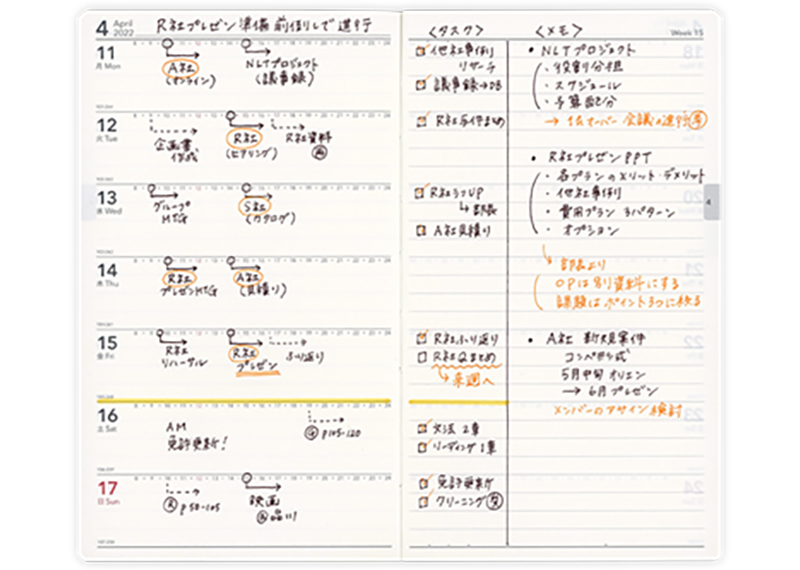 4 April
2022
R社プレゼン準備 前倒しで進行
11
月 Mon
A社
(オンライン)
NLTプロジェクト
(議事録)
12
火 Tue
企画書
作成
R社
(ヒアリング)
R社資料
13
水 Wed
グループ
MTG
S社
(カタログ)
14
木 Thu
R社
プレゼンMTG
A社
(見積り)
15
金 Fri
R社
リハーサル
R社
プレゼン
ふり返り
16
土 Sat
AM
免許更新!
p105-120
17
日 Sun
p50-105
映画
品川!
<タスク>
他社事例
リサーチ
議事録→DB
R社要件まとめ
R社ラフUP
→部長
A社見積り
R社ふり返り
R社Qまとめ
→来週へ
文法 2章
リーディング 1章
免許更新
クリーニング
<メモ>
Week 15
• NLTプロジェクト
・役割分担
・スケジュール
・予算配分
• R社プレゼンPPT
・各プランのメリット・デメリット
・他社事例
・費用プラン 3パターン
・オプション
部長より
OPは別資料にする
課題はポイント3つに絞る
• A社 新規案件
コンペ形式
5月中旬 オリエン
→ 6月プレゼン
メンバーのアサイン検討
4